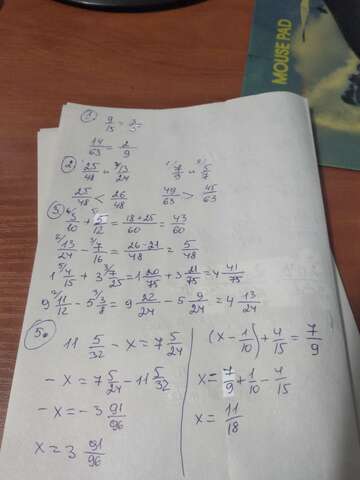 MOUSE PAD
1.
9/15 = 3/5
14/63 = 2/9
2. 25/48 и 13/24
25/48 < 26/48
7/9 и 5/7
49/63 > 45/63
3. 3/10 + 5/12 = 18+25/60 = 43/60
13/24 - 7/16 = 26-21/48 = 5/48
1 4/15 + 3 7/25 = 1 20/75 + 3 21/75 = 4 41/75
9 11/12 - 5 3/8 = 9 22/24 - 5 9/24 = 4 13/24
5.
11 5/32 - x = 7 5/24
- x = 7 5/24 - 11 5/32
- x = - 3 91/96
x = 3 91/96
(x - 1/10) + 4/15 = 7/9
x = 7/9 + 1/10 - 4/15
x = 11/18